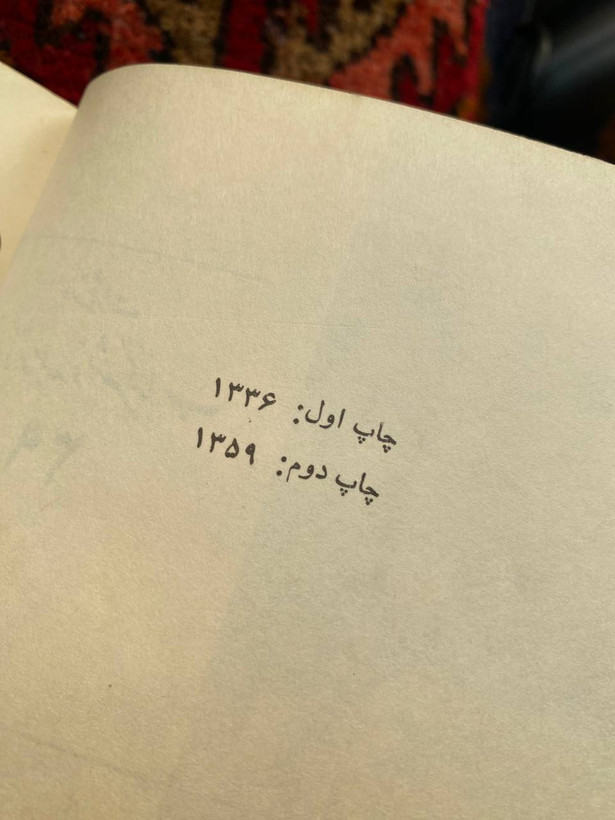 چاپ اول: ۱۳۳۶
چاپ دوم: ۱۳۵۹